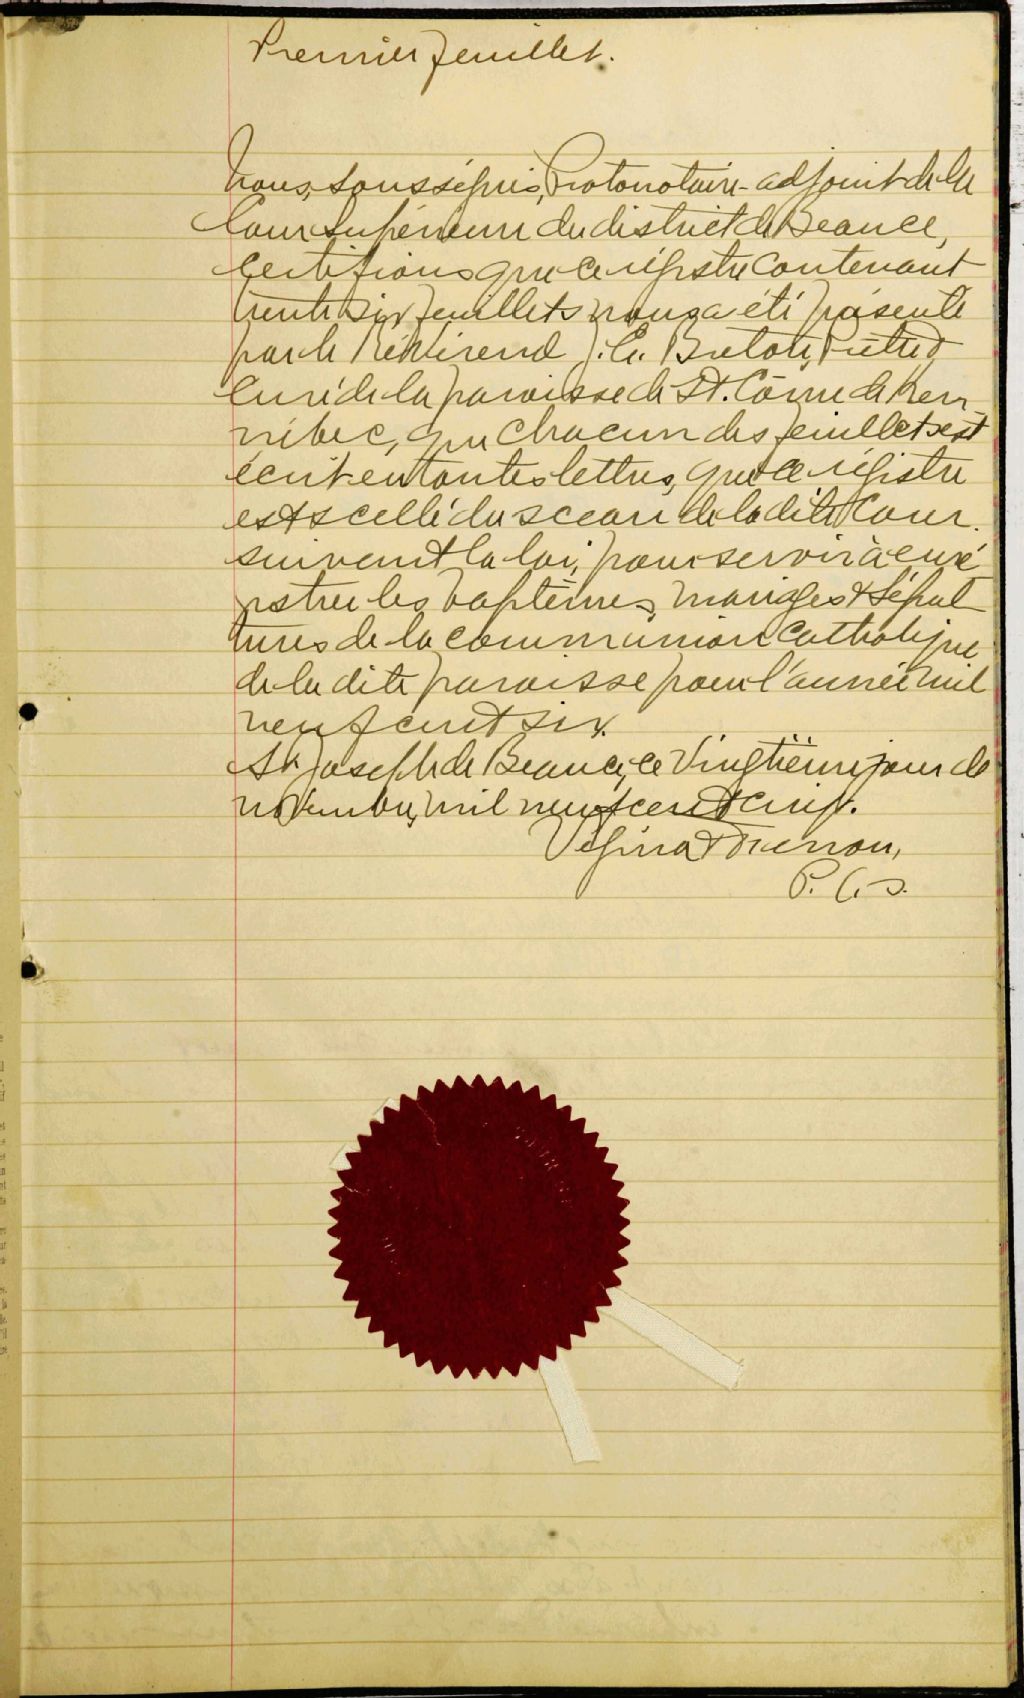 Premier feuillet.
Nous, soussignés, Protonotaire-adjoint de la
Cour Supérieure du district de Beauce,
Certifions que ce régistre contenant
trente six feuillets nous a été présenté
par le Révérend J. E. Breton, Prêtre &
Curé de la paroisse de St. Côme de Ken
nébec, que chacun des feuillets est
écrit en toutes lettres, que ce régistre
est scellé du sceau de la dite Cour
suivant la loi, pour servir à enré
gistrer les baptêmes, mariages & sépul
tures de la communion Catholique
de la dite paroisse pour l'année mil
neuf cent six.
St Joseph de Beauce, ce Vingtième jour de
novembre, mil neuf cent cinq.
Vézina &
P. C. S.